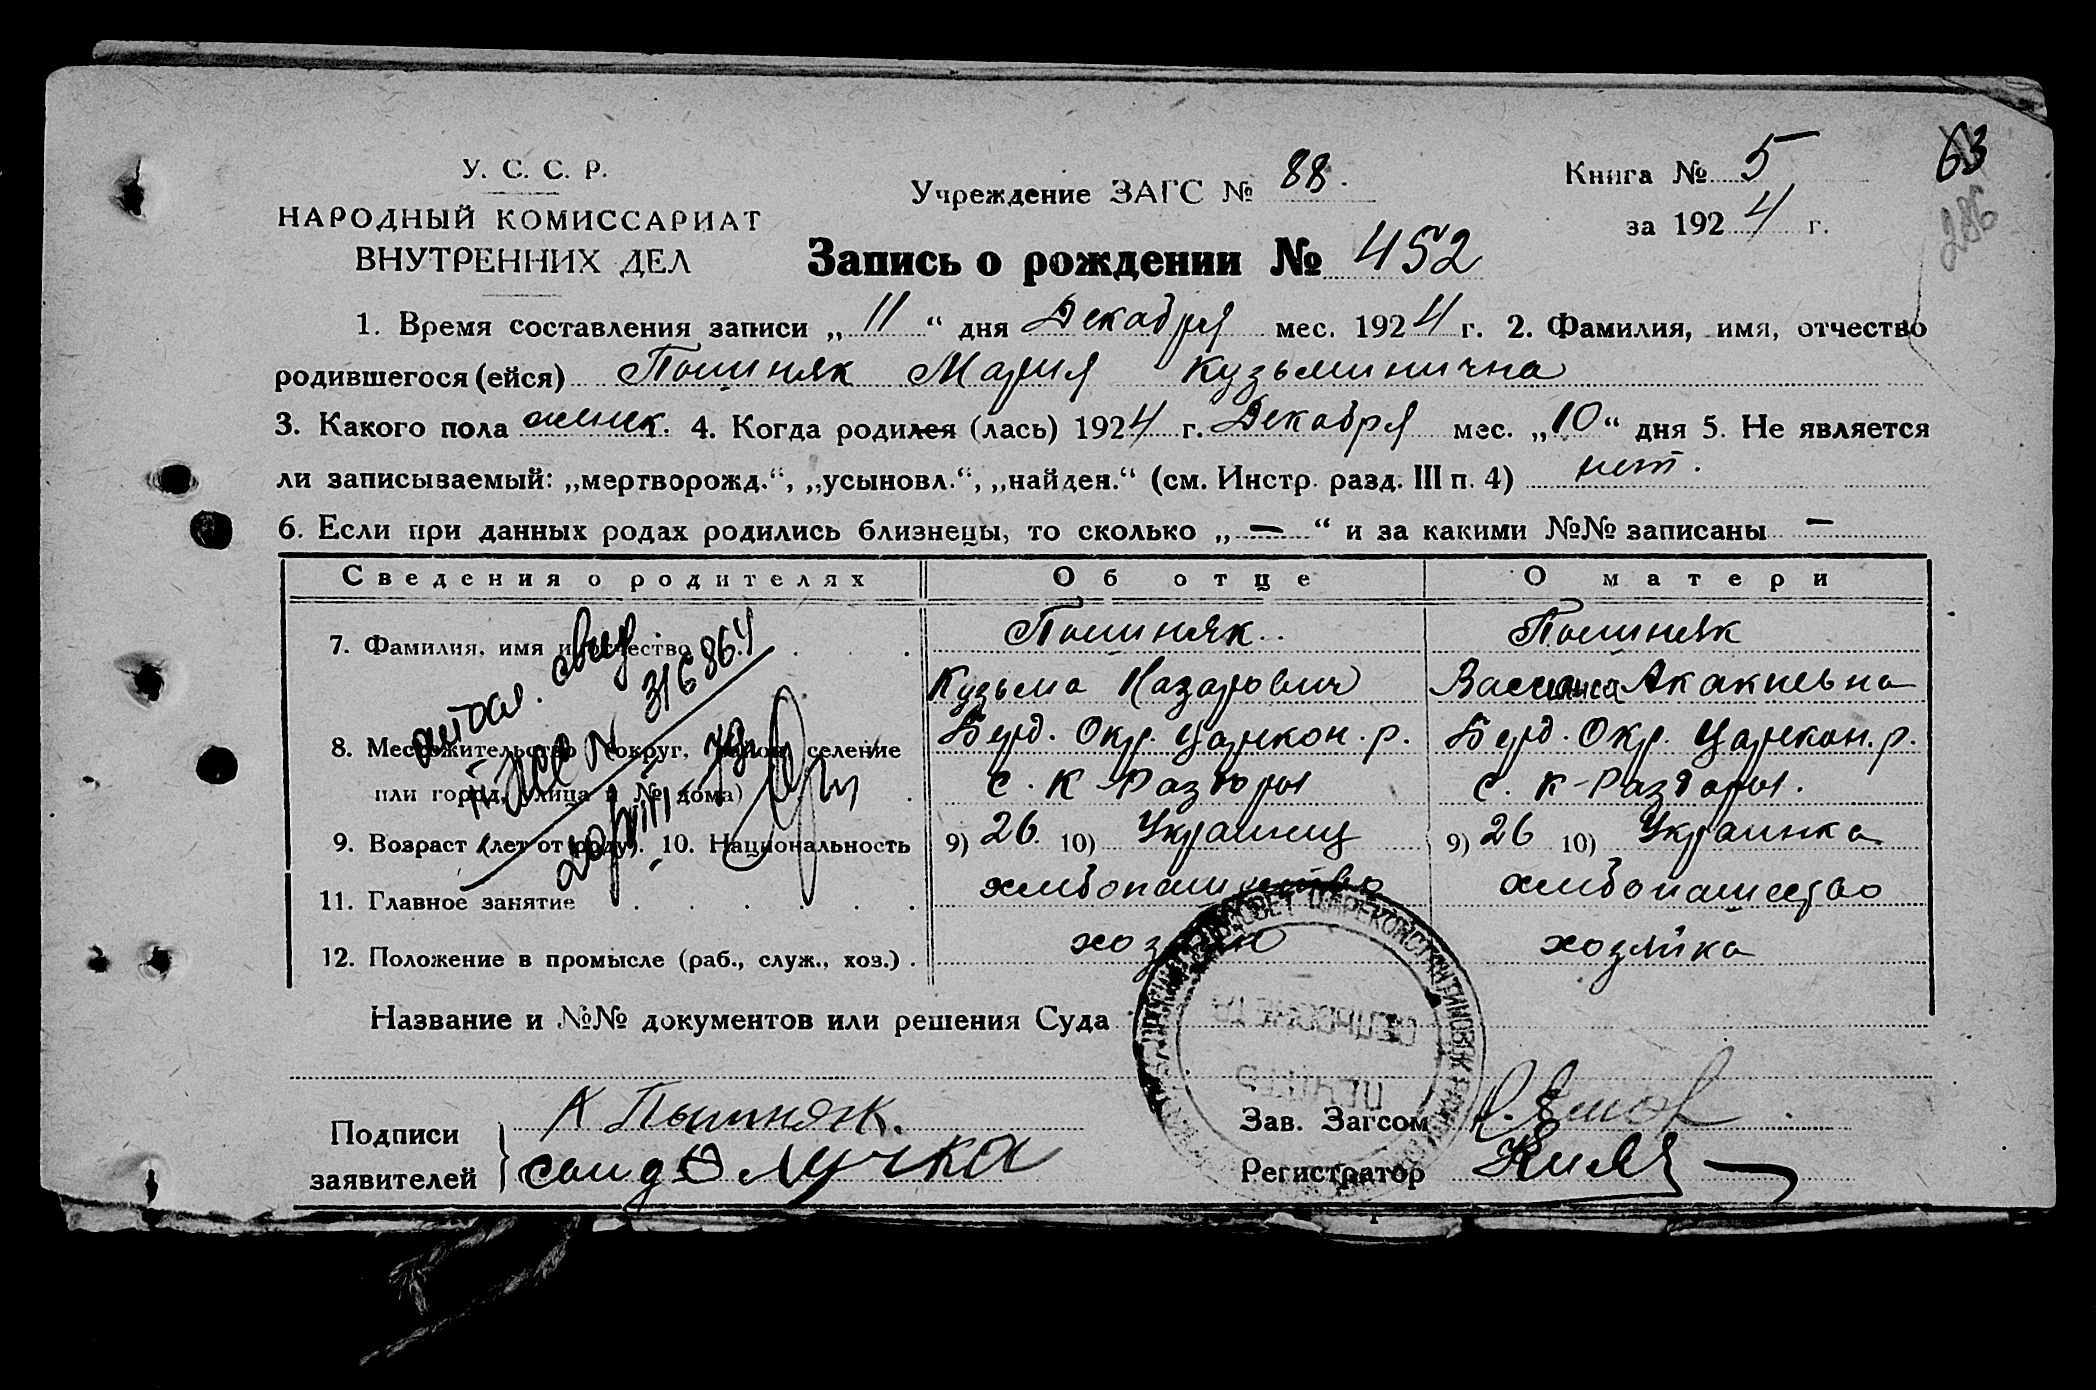 63
286
У. С. С. Р.
НАРОДНЫЙ КОМИССАРИАТ
ВНУТРЕННИХ ДЕЛ
Учреждение ЗАГС № 88.
Книга № 5
за 1924 г.
Запись о рождении № 452
1. Время составления записи „11“ дня Декабря мес. 1924 г. 2. Фамилия, имя, отчество
родившегося (ейся) Пошиняк Мария Кузьминична
3. Какого пола женск. 4. Когда родился (лась) 1924 г. Декабря мес. „10“ дня 5. Не является
ли записываемый: „мертворожд.“, „усыновл.“, „найден.“ (см. Инстр. разд. III п. 4) нет.
6. Если при данных родах родились близнецы, то сколько „—“ и за какими №№ записаны —
Сведения о родителях Об отце О матери
7. Фамилия, имя и отчество Пошиняк Пошиняк
Кузьма Назарович Акакиевна
8. Местожительство (округ, район, селение Берд. Окр. Царекон. р. Берд. Окр. Царекон. р.
или город, улица и № дома) с. К-Раздоры с. К-Раздоры.
9. Возраст (лет от роду). 10. Национальность 9) 26 10) Украинец 9) 26 10) Украинка
11. Главное занятие хлебопашество хлебопашество
12. Положение в промысле (раб., служ., хоз.) хозяин хозяйка
316864
Название и №№ документов или решения Суда
Подписи
заявителей
К Пошняк.
Лучка
Зав. Загсом
Регистратор